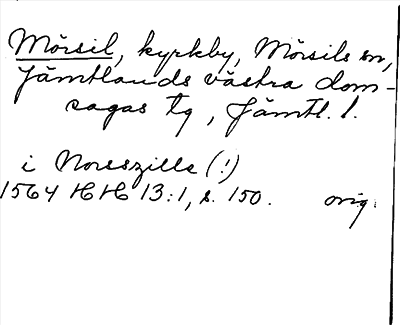 Mörsil, kyrkby, Mörsils sn,
Jämtlands västra dom-
sagas tg, Jämtl. l.
i Noreszille (!)
1564 HH 13:1, s. 150. orig.